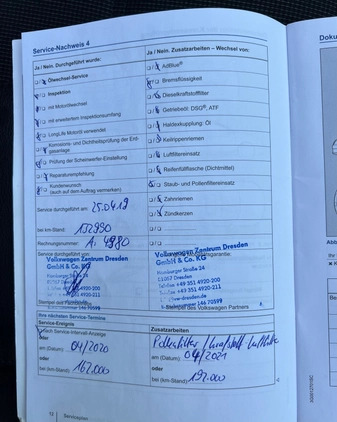 Service-Nachweis 4
Ja / Nein. Durchgeführt wurde:
Ölwechsel-Service
Inspektion
mit Motorölwechsel
mit erweitertem Inspektionsumfang
LongLife Motoröl verwendet
Korrosions- und Dichtheitsprüfung der Erdgasanlage
Prüfung der Scheinwerfer-Einstellung
Reparaturempfehlung
Kundenwunsch
(auch auf dem Auftrag vermerken)
Service durchgeführt am: 25.04.19
bei km-Stand:
Rechnungsnummer:
Service durchgeführt von:
Volkswagen Zentrum Dresden
GmbH & Co. KG
Stempel der Fachwerkstatt
Ja / Nein. Zusatzarbeiten – Wechsel von:
AdBlue®
Bremsflüssigkeit
Dieselkraftstofffilter
Getriebeöl: DSG®, ATF
Haldexkupplung: Öl
Keilrippenriemen
Luftfiltereinsatz
Reifenfüllflasche (Dichtmittel)
Staub- und Pollenfiltereinsatz
Zahnriemen
Zündkerzen
Volkswagen Zentrum Dresden
GmbH & Co. KG
Hamburger Straße 24
01067 Dresden
Telefon +49 351 4920-200
Stempel des Volkswagen Partners
Ihre nächsten Service-Termine
Service-Ereignis
Nach Service-Intervall-Anzeige
oder
am (Datum) 04/2020
oder
bei (km-Stand): 162.000
Zusatzarbeiten
Pollenfilter / Kraftstoff Luftfilter
am (Datum): 04/2021
oder
bei (km-Stand): 192.000
12
Serviceplan